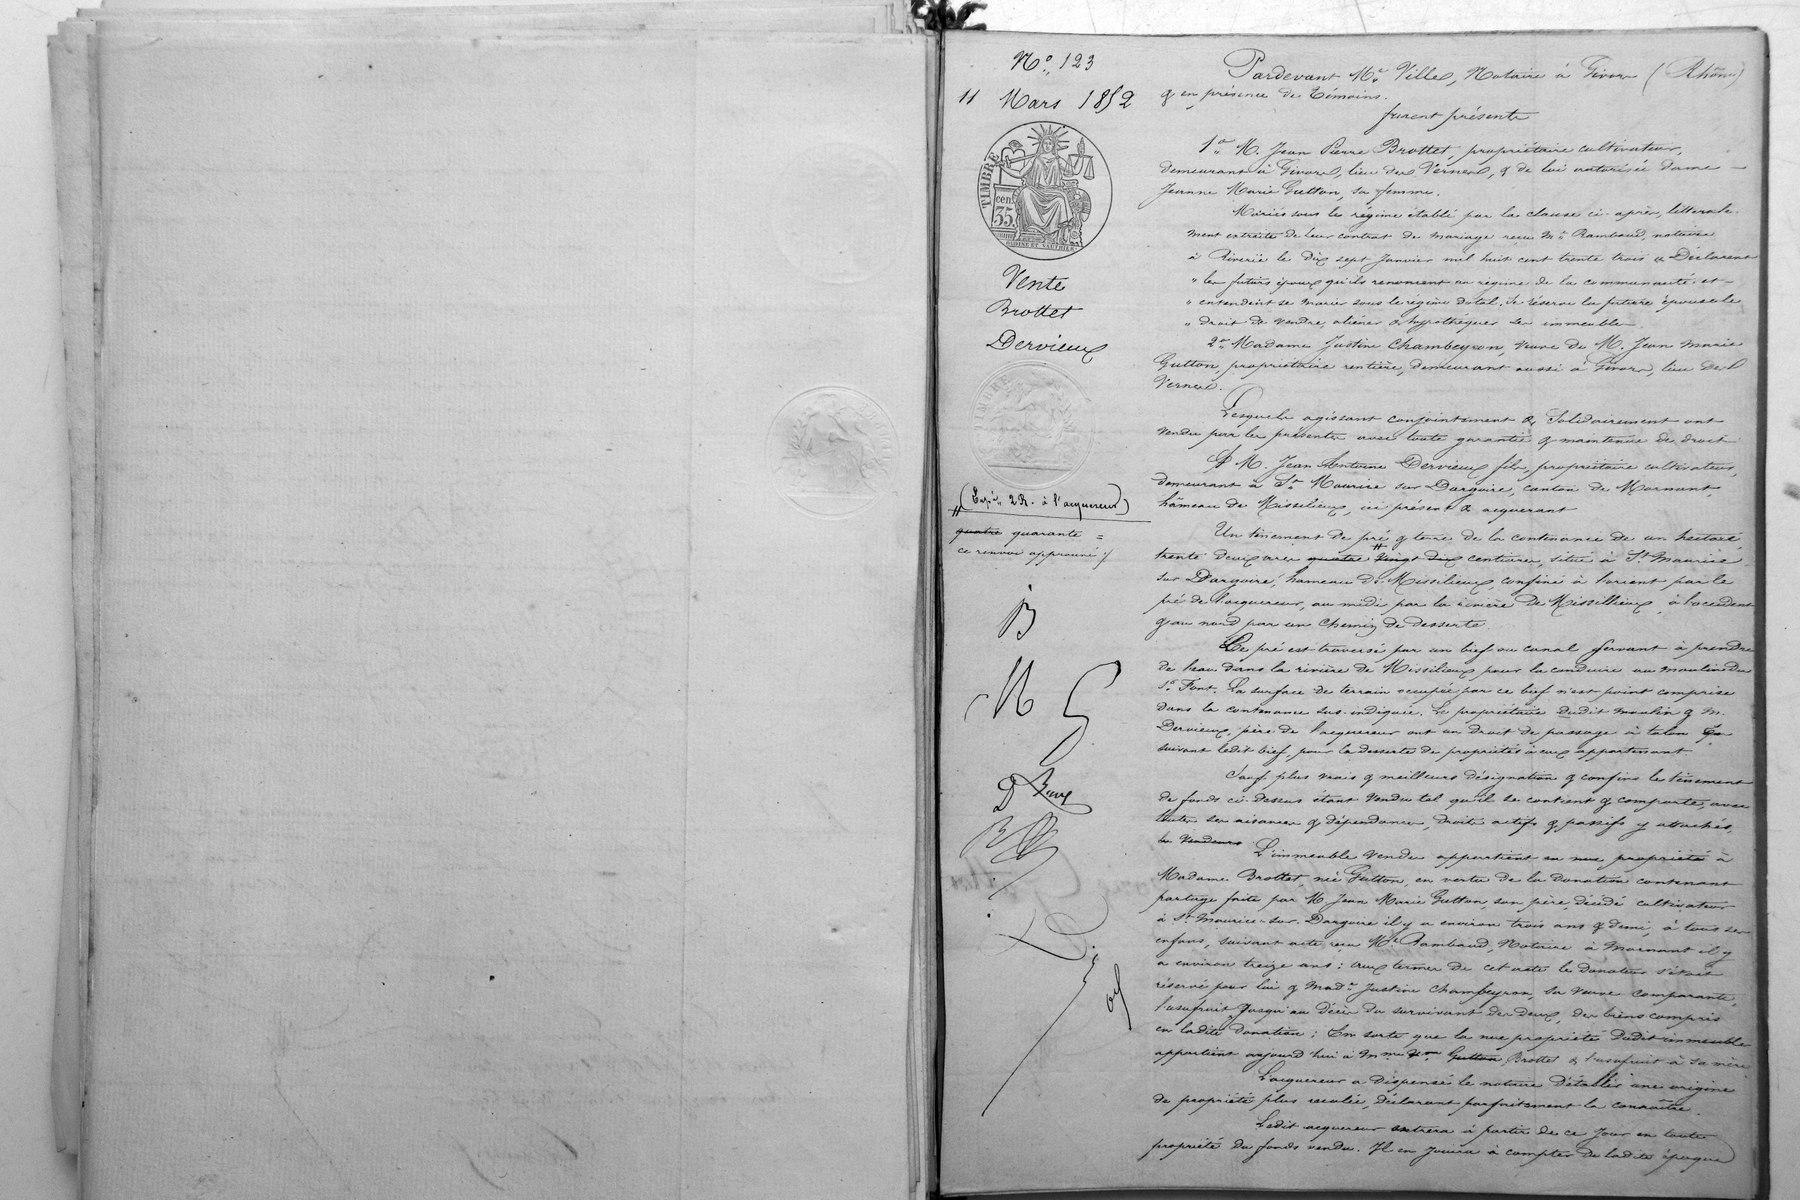 N° 123
11 Mars 1852
TIMBRE
cen.
35
Vente
Brottet
Dervieux
(Exp.on 2 R. à l'acquereur)
quatre quarante =
ce renvoi approuvé
Pardevant Me Ville, Notaire à Givors (Rhône)
& en présence de témoins.
furent présents
1° M. Jean Pierre Brottet, propriétaire cultivateur,
demeurant à Givors, lieu du Vernel, & de lui autorisée dame
Jeanne Marie Gutton, sa femme.
Mariés sous le régime établi par la clause ci-après, littérale-
ment extraite de leur contrat de mariage reçu Me Rambaud, notaire
à Riverie le dix sept Janvier mil huit cent trente trois « Déclarent
« les futurs époux qu'ils renoncent au régime de la communauté et
« entendent se marier sous le régime dotal, se réserve la future épouse le
« droit de vendre, aliéner & hypothéquer ses immeubles
2° Madame Justine Chambeyron, veuve de M. Jean Marie
Gutton propriétaire rentière, demeurant aussi à Givors, lieu del
Vernel.
Lesquels agissant conjointement & solidairement ont
vendu par les présentes avec toute garantie & maintenue de droit
A M. Jean Antoine Dervieux fils, propriétaire cultivateur,
demeurant à St Maurice sur Dargoire, canton de Mornant,
hâmeau de Missilieux, ici présent & acquérant
Un tènement de pré & terre de la contenance de un hectare,
trente deux ares quatre vingt dix centiares, situé à St Maurice
sur Dargoire, hameau de Missilieux, confiné à l'orient par le
pré de l'acquereur, au midi par la rivière de Missillieux, à l'occident
& au nord par un chemin de desserte
Le pré est traversé par un bief ou canal servant à prendre
de l'eau dans la rivière de Missilieux pour la conduire au moulin du
Sr Font. La surface de terrain occupée par ce bief n'est point comprise
dans la contenance sus-indiquée. Le propriétaire dudit moulin & M.
Dervieux, père de l'acquereur ont un droit de passage à talon
suivant ledit bief, pour la desserte de propriétés à eux appartenant
Sauf plus vrais & meilleurs désignation & confins le tènement
de fonds ci-dessus étant vendu tel qu'il se contient & comporte, avec
toutes ses aisances & dépendances, droits actifs & passifs y attachés,
les vendeurs L'immeuble vendu appartient en nue propriété à
Madame Brottet, née Gutton, en vertu de la donation contenant
partage faite par M. Jean Marie Gutton, son père, décédé cultivateur
à St Maurice-sur-Dargoire il y a environ trois ans & demi, à tous ses
enfans, suivant acte reçu Me Rambaud, Notaire à Mornant il y
a environ treize ans : aux termes de cet acte le donateur s'était
réservé pour lui & Made Justine Chambeyron, sa veuve comparante,
l'usufruit, jusqu'au décès du survivant des deux, des biens compris
en ladite donation ; En sorte que la nue propriété dudit immeuble
appartient aujourd'hui à Mme Gutton Brottet & l'usufruit à sa mère
L'acquereur a dispensé le notaire d'établir une origine
de propriété plus reculée, déclarant parfaitement la connaître.
Ledit acquereur entrera à partir de ce jour en toute
propriété du fonds vendu. Il en jouira à compter de ladite époque